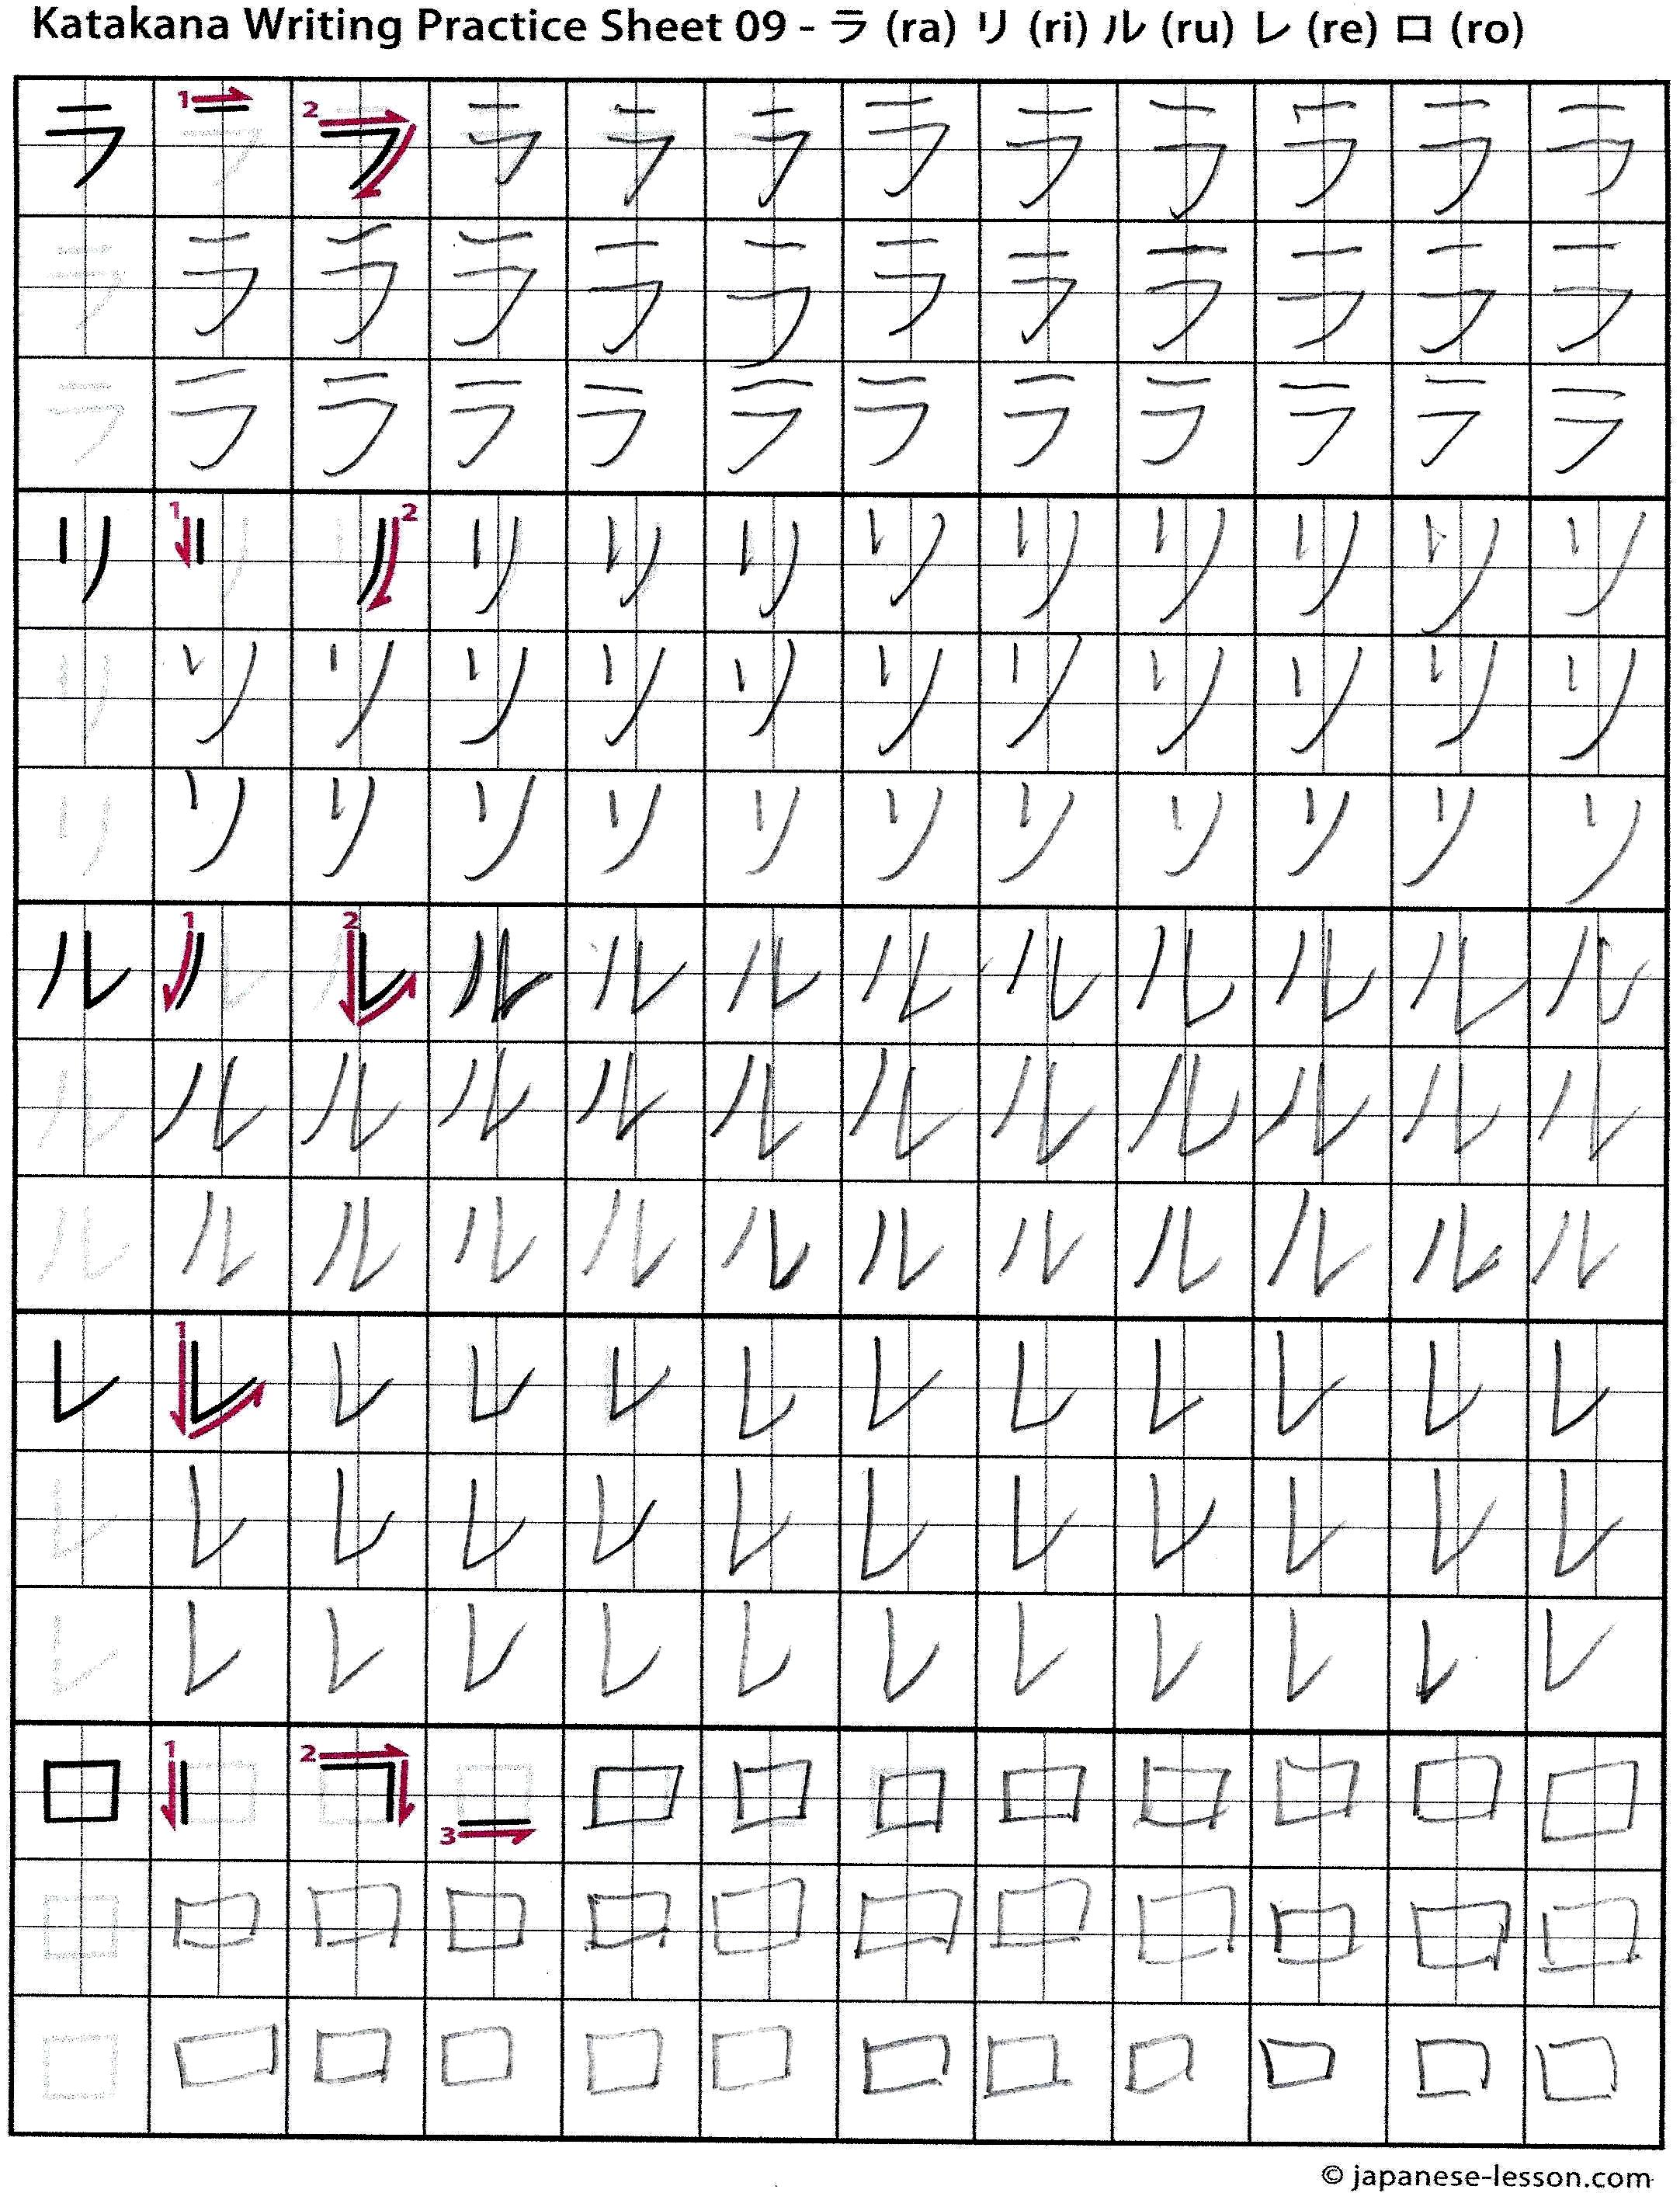 Katakana Writing Practice Sheet 09 - ラ (ra) リ (ri) ル (ru) レ (re) ロ (ro)
ラ 1 2 ラ ラ ラ ラ ラ ラ ラ ラ ラ
ラ ラ ラ ラ ラ ラ ラ ラ ラ ラ ラ ラ
ラ ラ ラ ラ ラ ラ ラ ラ ラ ラ ラ ラ
リ 1 2 リ リ リ リ リ リ リ リ リ
リ リ リ リ リ リ リ リ リ リ リ リ
リ リ リ リ リ リ リ リ リ リ リ リ
ル 1 2 ル ル ル ル ル ル ル ル ル
ル ル ル ル ル ル ル ル ル ル ル ル
ル ル ル ル ル ル ル ル ル ル ル ル
レ 1 レ レ レ レ レ レ レ レ レ レ
レ レ レ レ レ レ レ レ レ レ レ レ
レ レ レ レ レ レ レ レ レ レ レ レ
ロ 1 2 3 ロ ロ ロ ロ ロ ロ ロ ロ
ロ ロ ロ ロ ロ ロ ロ ロ ロ ロ ロ ロ
ロ ロ ロ ロ ロ ロ ロ ロ ロ ロ ロ ロ
© japanese-lesson.com